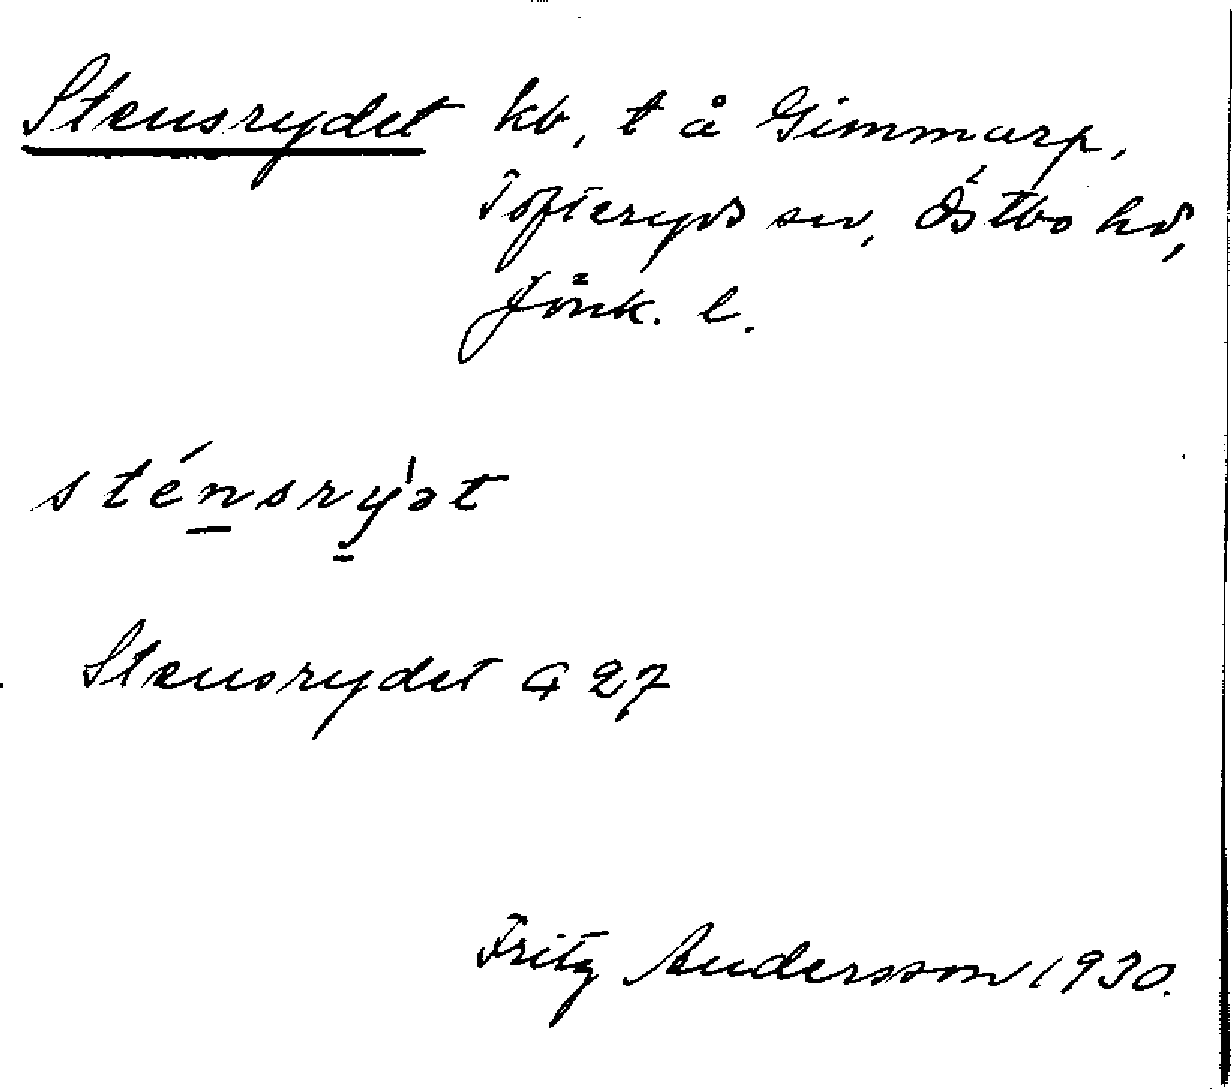 Stensrydet kb, t å Gimmarp,
Tofteryds sn, Östbo hd,
Jönk. l.
sténsrỳət
Stensrydet G 27
Fritz Andersson 1930.